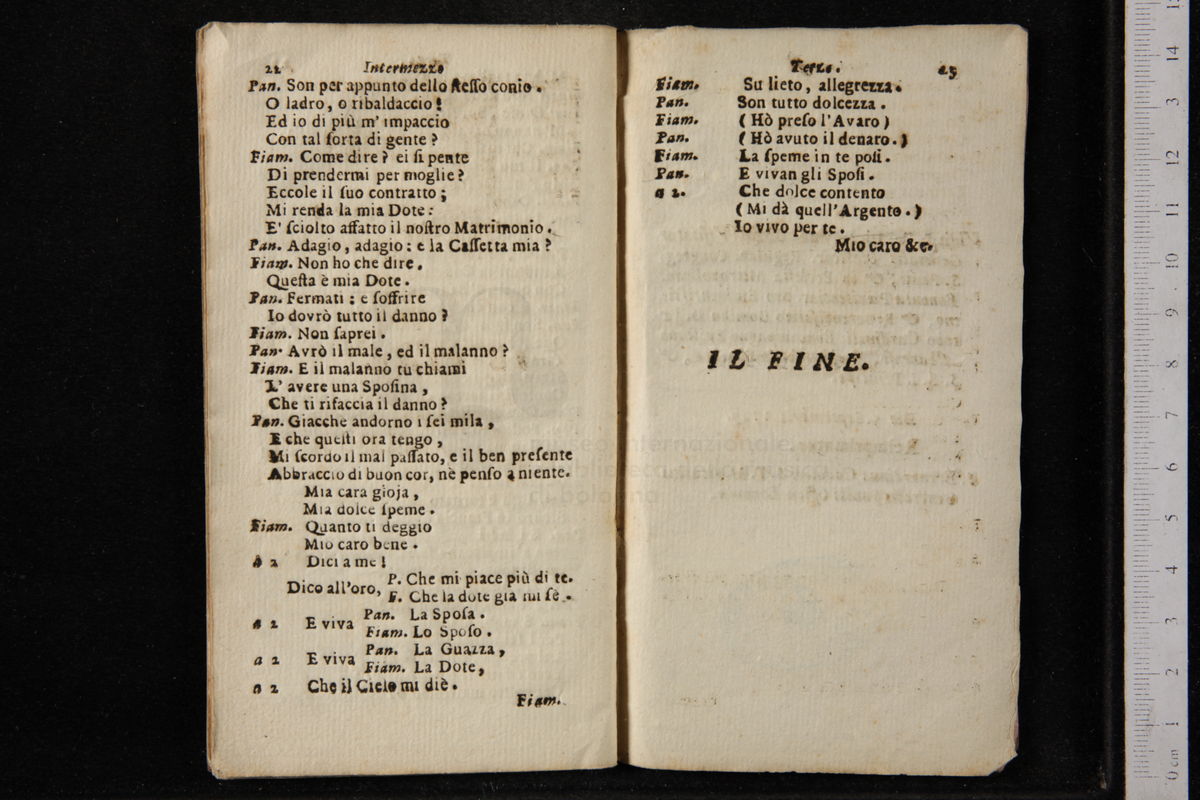 22 Intermezzo
Pan. Son per appunto dello ſteſſo conio.
O ladro, o ribaldaccio!
Ed io di più m' impaccio
Con tal ſorta di gente?
Fiam. Come dire? ei ſi pente
Di prendermi per moglie?
Eccole il ſuo contratto;
Mi renda la mia Dote:
E' ſciolto affatto il noſtro Matrimonio.
Pan. Adagio, adagio: e la Caſſetta mia?
Fiam. Non ho che dire.
Queſta è mia Dote.
Pan. Fermati: e ſoffrire
Io dovrò tutto il danno?
Fiam. Non ſaprei.
Pan. Avrò il male, ed il malanno?
Fiam. E il malanno tu chiami
L' avere una Spoſina,
Che ti rifaccia il danno?
Pan. Giacche andorno i ſei mila,
E che queſti ora tengo,
Mi ſcordo il mal paſſato, e il ben preſente
Abbraccio di buon cor, nè penſo a niente.
Mia cara gioja,
Mia dolce ſpeme.
Fiam. Quanto ti deggio
Mio caro bene.
A 2 Dici a me!
Dico all'oro, P. Che mi piace più di te.
F. Che la dote gia mi fè.
a 2 E viva Pan. La Spoſa.
Fiam. Lo Spoſo.
a 2 E viva Pan. La Guazza,
Fiam. La Dote,
a 2 Che il Cielo mi diè.
Fiam.
Terzo. 23
Fiam. Su lieto, allegrezza.
Pan. Son tutto dolcezza.
Fiam. (Hò preſo l'Avaro)
Pan. (Hò avuto il denaro.)
Fiam. La ſpeme in te poſi.
Pan. E vivan gli Spoſi.
a 2. Che dolce contento
(Mi dà quell'Argento.)
Io vivo per te.
Mio caro &c.
IL FINE.
museo internazionale
biblioteca della musica
di bologna
0 cm 1 2 3 4 5 6 7 8 9 10 11 12 3 14